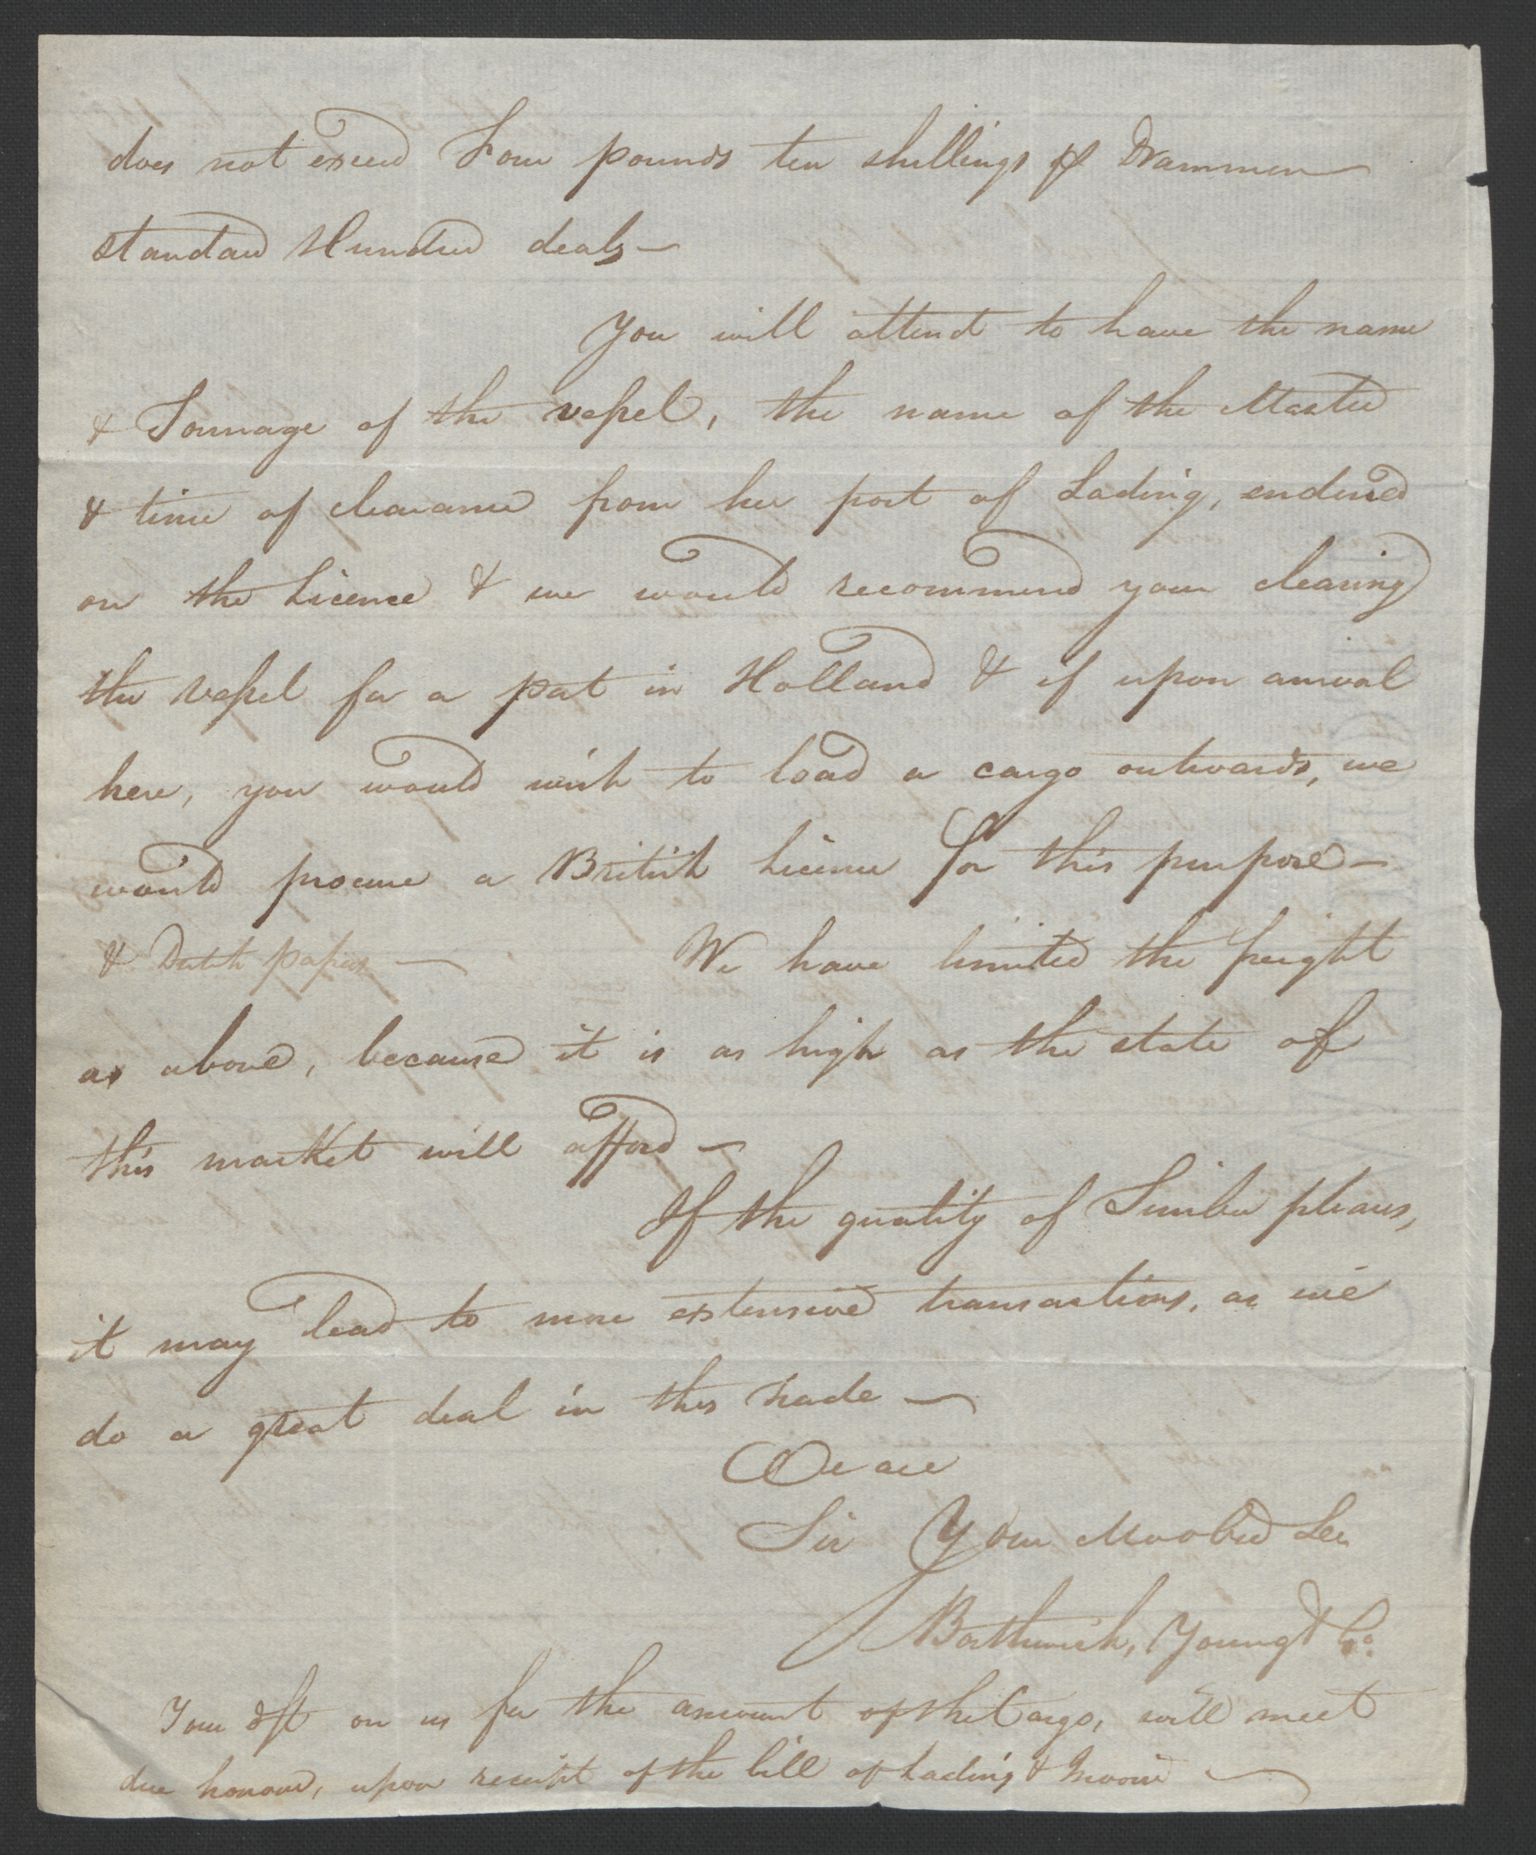 does not exceed Four pounds ten shillings ⅌ Drammen
standard Hundred deals —
You will attend to have the name
& Tonnage of the vessel, the name of the Master
& time of clearance from her port of Lading, endorsed
on the Licence & we would recommend your clearing
the vessel for a port in Holland & if upon arrival
here, you would wish to load a cargo outwards, we
would procure a British Licence for this purpose —
& Dutch papers — We have limited the freight
as above, because it is as high as the state of
this market will afford —
If the quality of Timber pleases,
it may lead to more extensive transactions, as we
do a great deal in this trade —
We are
Sir Your Mo obed Se
Borthwick, Young & Co.
Your dft on us for the amount of the Cargo, will meet
due honour, upon receipt of the bill of Lading & Invoice —